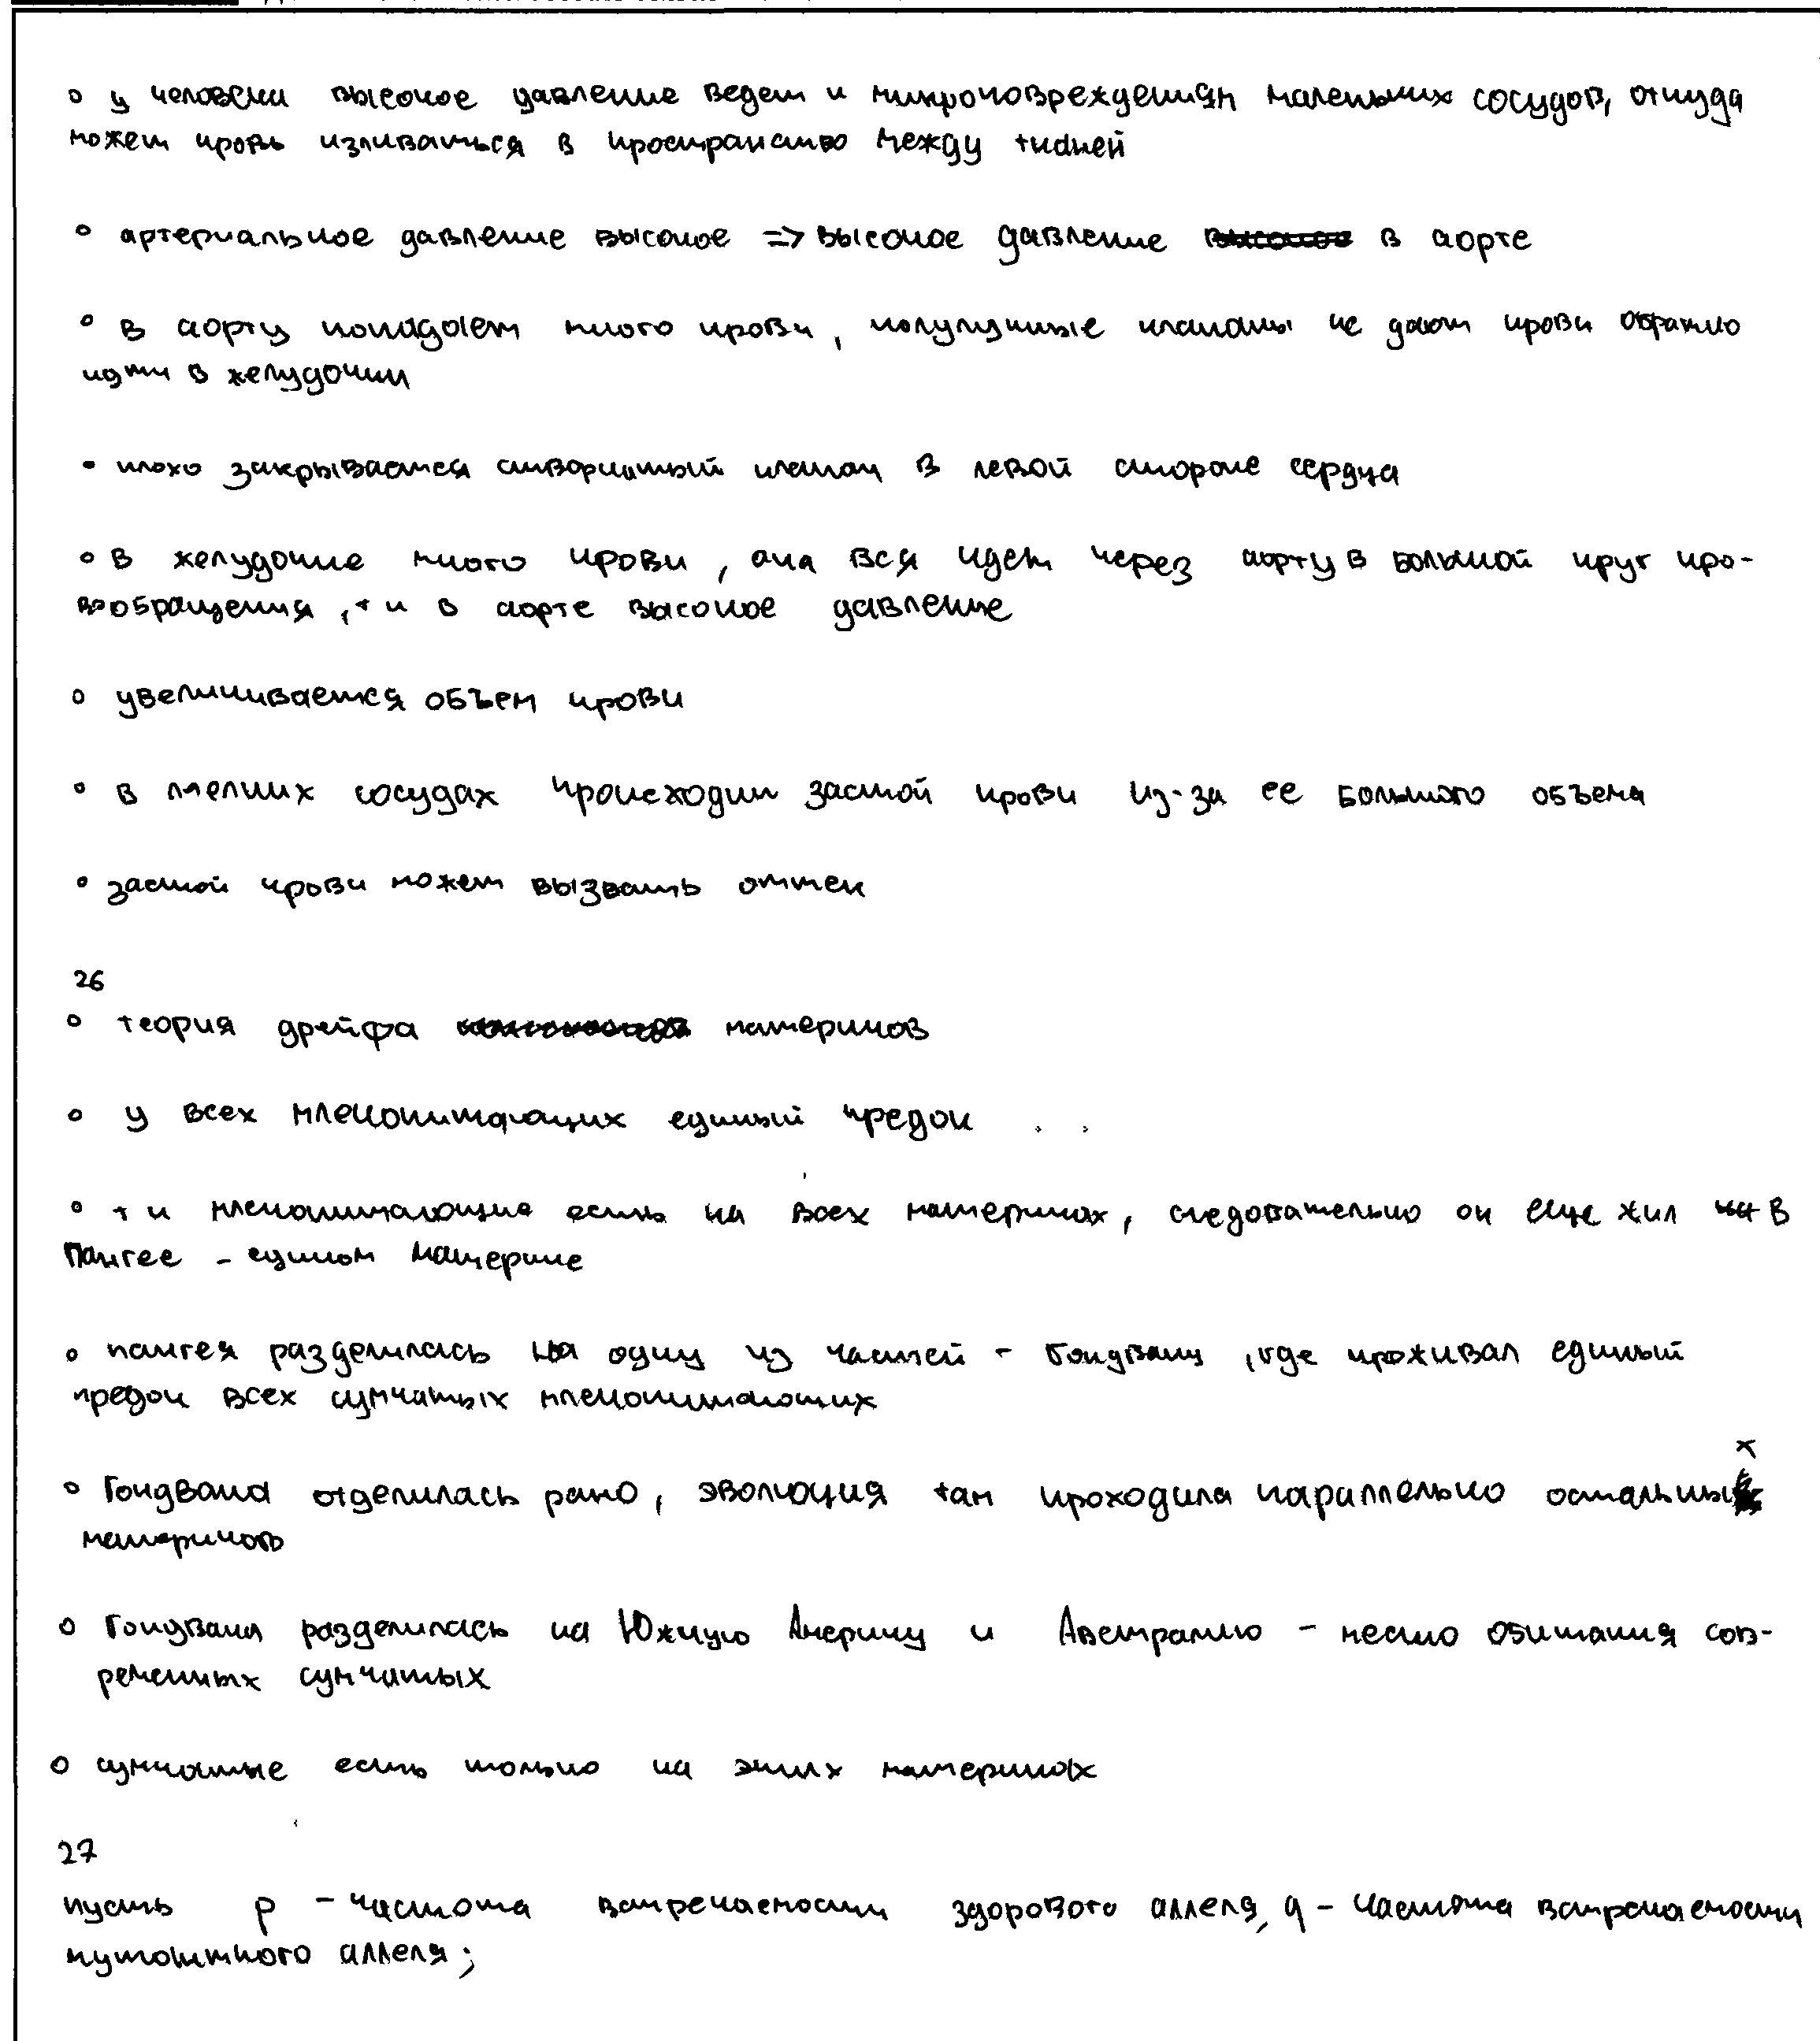 о у человека высокое давление ведет к микроповреждениям маленьких сосудов, откуда
может кровь изливаться в пространство между тканей
о артериальное давление высокое => высокое давление в аорте
о в аорту попадает много крови, полулунные клапаны не дают крови обратно
идти в желудочки
о плохо закрывается створчатый клапан в левой стороне сердца
о в желудочке много крови, она вся идет через аорту в большой круг кро-
вообращения, т к в аорте высокое давление
о увеличивается объем крови
о в мелких сосудах происходит застой крови из-за ее большого объема
о застой крови может вызвать оттек
26
о теория дрейфа материков
о у всех млекопитающих единый предок
о т к млекопитающие есть на всех материках, следовательно он еще жил в
Пангее - едином материке
о пангея разделилась на одну из частей - Гондвану, где проживал единый
предок всех сумчатых млекопитающих
о Гондвана отделилась рано, эволюция там проходила параллельно остальных
материков
о Гондвана разделилась на Южную Америку и Австралию - место обитания сов-
ременных сумчатых
о сумчатые есть только на этих материках
27
пусть p - частота встречаемости здорового аллеля, q - частота встречаемости
мутантного аллеля;